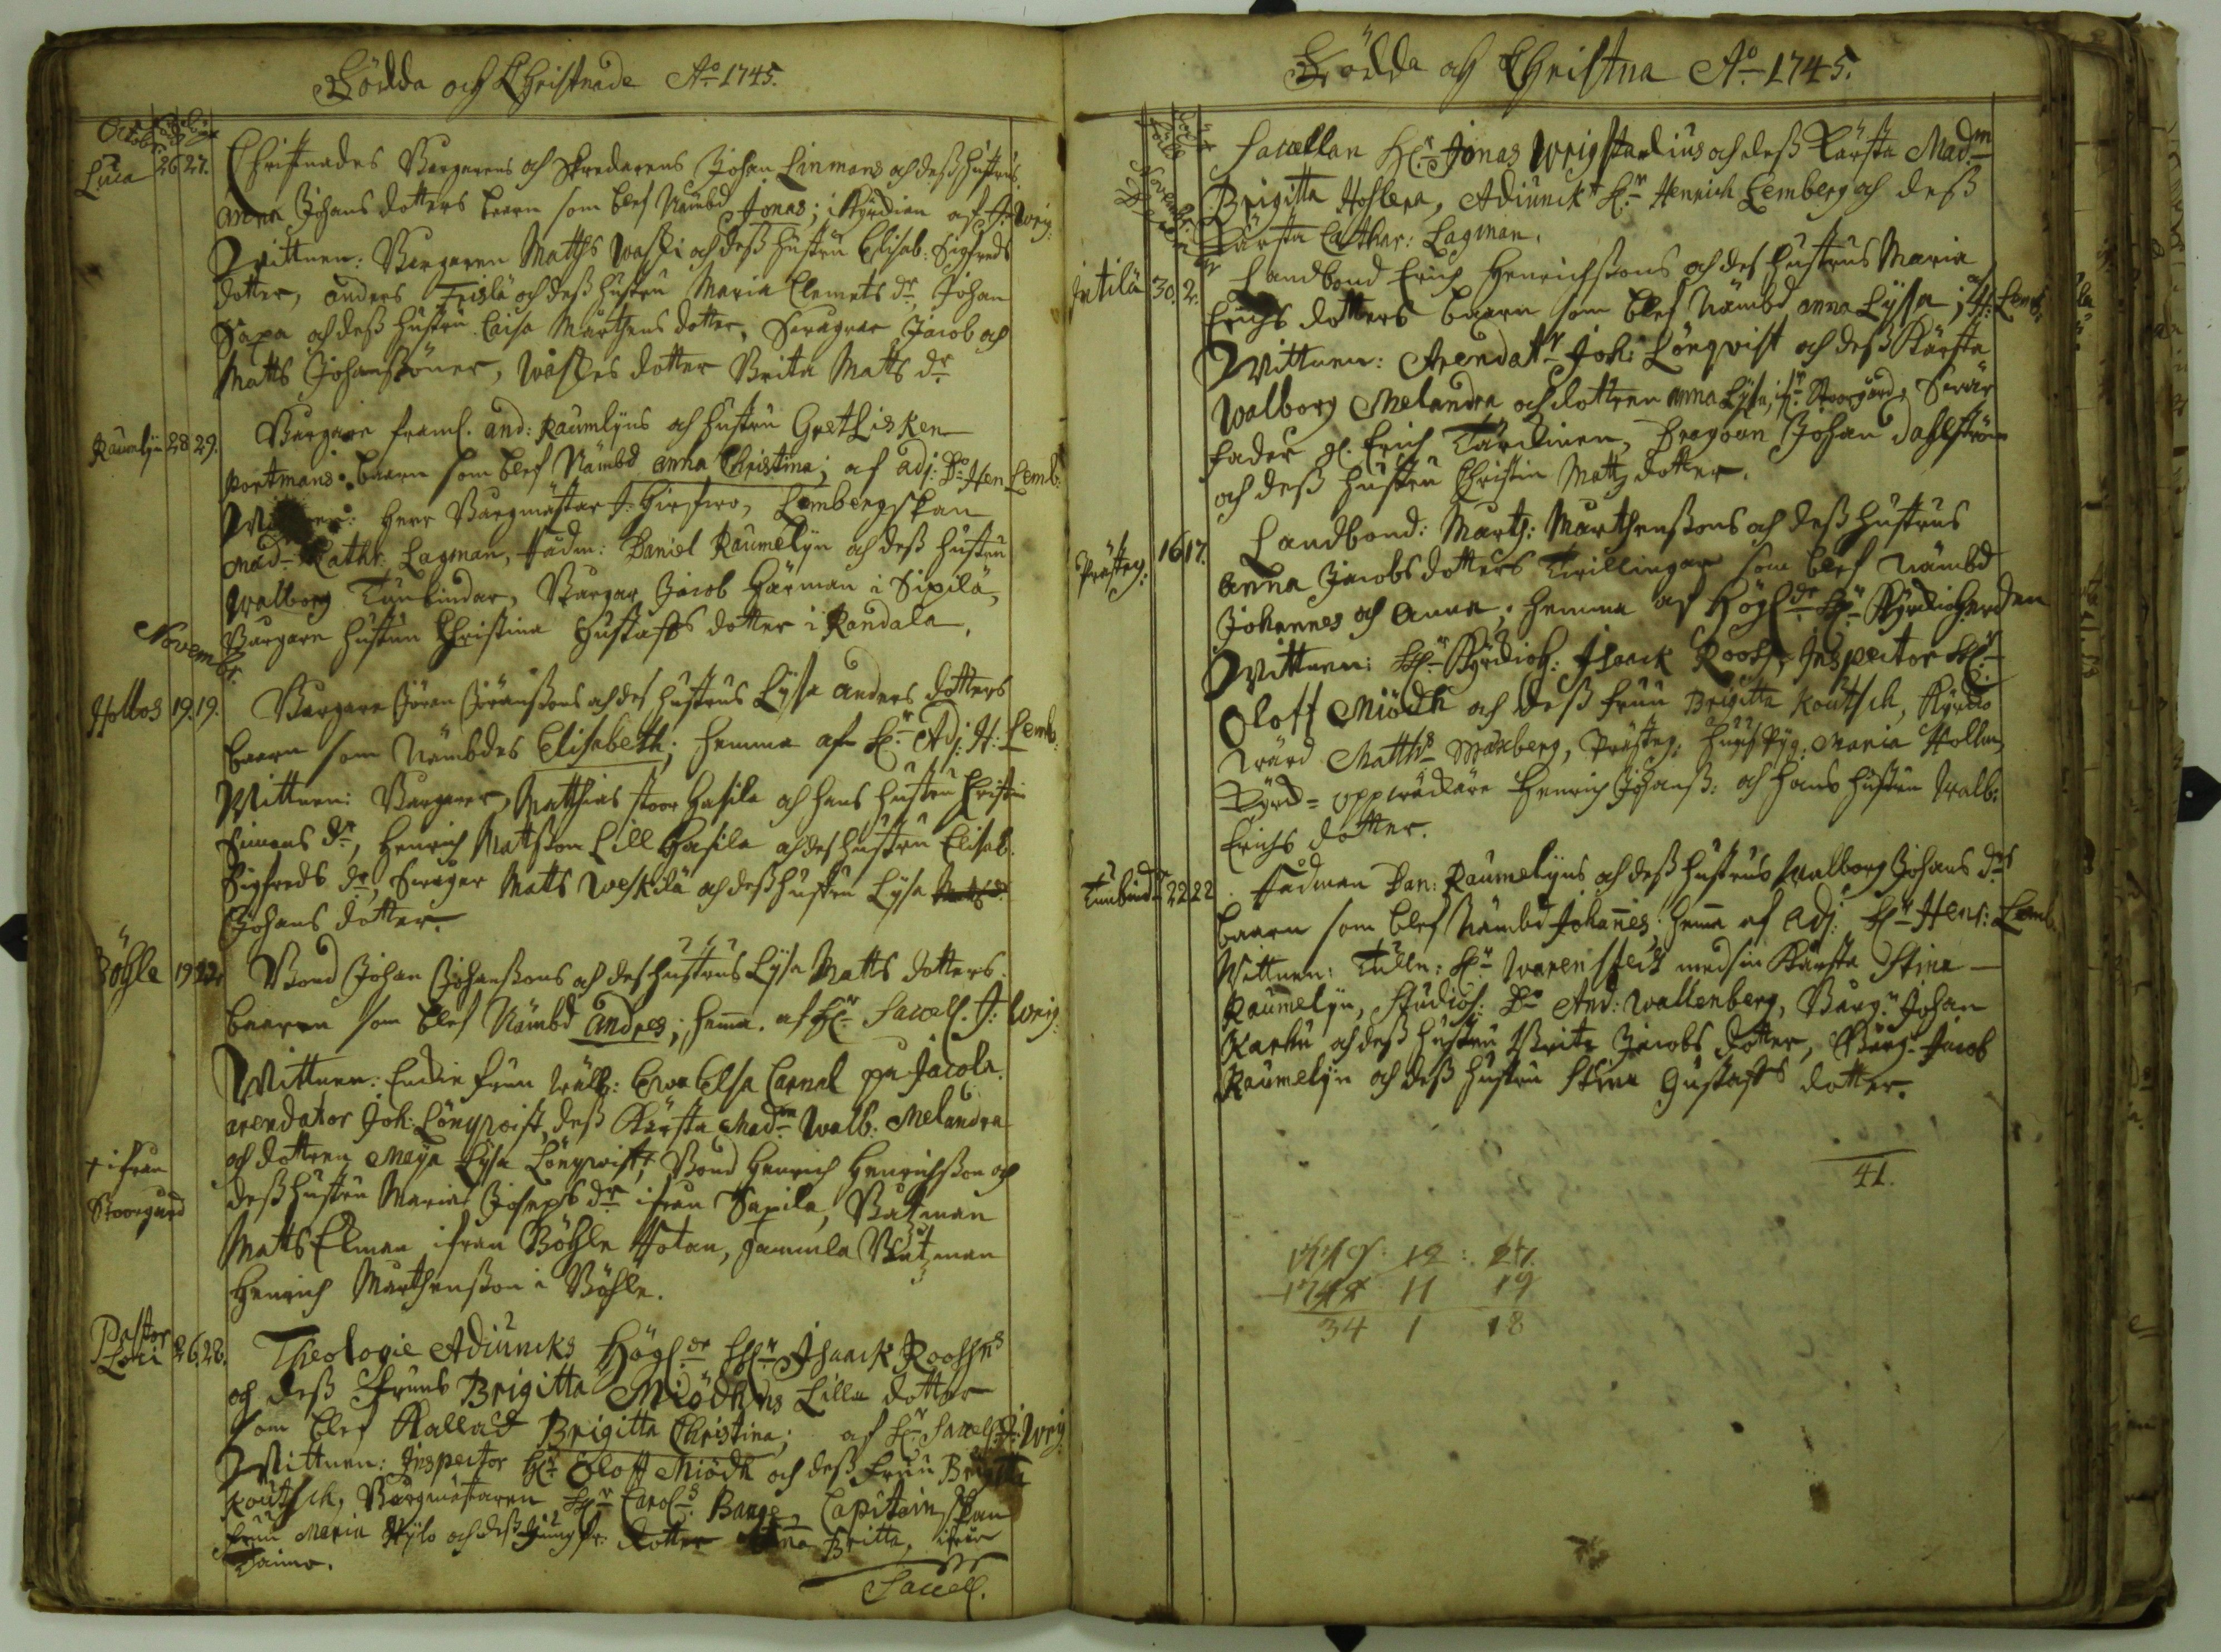 Födda och Christnade Ao 1745.
Octobr. född döpt
Luca 26 27. Christnades Borgarens och Skredarens Johan Linmans och dess hustrus
Anna Johans dotters baarn som blef Nämbd Jonas; i Kyrckian af J: Wrig:
Wittnen: Borgaren Matths Waski och dess hustru Elisab: Sigfreds
dotter, Anders Frislä och dess hustru Maria Clemets dr, Johan
Papa och dess hustru Caisa Mårthens dotter, Jacob och
Matts Johanssöner, dotter Brita Matts dr
Raumlijn 28 29. Borgare framl. And: Raumlijns och hustru GretLisken
Portmans baarn som blef Nämbd Anna Christina; af Adj: Do Hen Lemb:
Herr Borgmästar J: Lembergskan
Mad. Cathr: Lagman, Fädm: Daniel Raumelijn och dess hustru
Walborg Tunbindar, Borgar Jacob Härman i Sipilä,
Borgare hustrun Christina Gustafs dotter i Randala.
Novembr.
Hollos 19. 19. Borgare Jöran Jöranssons och des hustrus Lysa Anders dotters
baarn som Nämbdes Elisabeth; hemma af Hr Adj: H: Lemb:
Wittnen: Borgaren Matthias stoor Hasila och hans hustru Christin
Simons dr, Henrich Mattsson Lill Hasila och des hustru Elisab.
Sigfreds dr, Matts Weskilä och dess hustru Lysa
Johans dotter.
Böhle 19 22 Bond Johan Johanssons och des hustrus Lysa Matts dotters
baaren som blef Nämbd Andres; hema. af Hr Sacell. J: Wrig:
Wittnen: fruu Wälb: Ewa Elsa Carnal på Jacola.
Arendator Joh: Lönqwist, dess Kärsta Madm Walb: Melandra
+ ifrån och dottren Meija Lysa Lönqwist + Bond Henrich Henrichsson och
Stoorgård dess hustru Maria Josephs dr ifrån Papila, Båtzman
Matts Elman ifrån Böhle gammla Båtzman
Henrich Mårthensson i Böhle.
Pastor Loci 26. 28. Theologie Adiuncks Högl. dr Hr Isaack Rooshs
och dess Fruus Brigitta Miödhs Lilla dotter
som blef Kallad Brigitta Christina; af Hr Sacell. J: Wrig:
Wittnen: Inspector Hr Oloff Miödh och dess fruu Brigitta
Koutsch, Borgmästaren Hr Carol. Bange, Capitainskan
fruu Maria och dess Jungfr: dotter Anna Britta, ifrån
Sacell.
Födda och Christna Ao 1745.
född döpt
Novembr.
Sacellan Hr Jonas Wrigstadius och dess Kärsta Madm
Brigitta Hoslera, Adiunckt Hr Henrich Lemberg och dess
Kärsta Cathar: Lagman.
Decembr
Jntilä 30. 2. Landbond Erich Henrichssons och des hustrus Maria
Erichs dotters baarn som blef Nämbd Anna Lyssa; H: Lemb:
Wittnen: Arendatr Joh: Lönqvist och dess Kärsta
Walborg Melandra och dottren Anna Lysa, i Stoorgård,
fader gl. Erich Kärckinen, Dragoun Johan Dahlström
och dess hustru Christin Mattz dotter.
Prästeg: 16 17. Landbond: Marth: Marthenssons och dess hustrus
Anna Jacobs dotters Twillingar som blef Nämbd
Johannes och Anna; hemma af Högl. dr Hr Kyrckioherden
Wittnen: Hr Kyrckioh: Isaack Roosh, Inspector Hr
Oloff Miödh och dess fruu Brigitta Koutsch, Kyrckio
Wärd Matths Wäxberg, Prästeg: Maria Hollon
Kyrck=uppwäckare Henrich Johanss: och hans hustru Walb:
Erichs dotter.
Tunbind. 22 22 Fädman Dan: Raumelijns och dess hustrus Walborg Johans drs
baarn som blef Nämbd Johañes; hema af Adj: Hr Henr: Lemb.
Wittnen: Tulln: Hr Warensfelt med sin Kärsta Stina
Raumelijn, Studios: Do And: Wallenberg, Borg: Johan
Karku och dess hustru Brita Jacobs dotter, Borg: Jacob
Raumelijn och dess hustru Stina Gustafs dotter.
41.
12: 27.
11 19
34 1 18